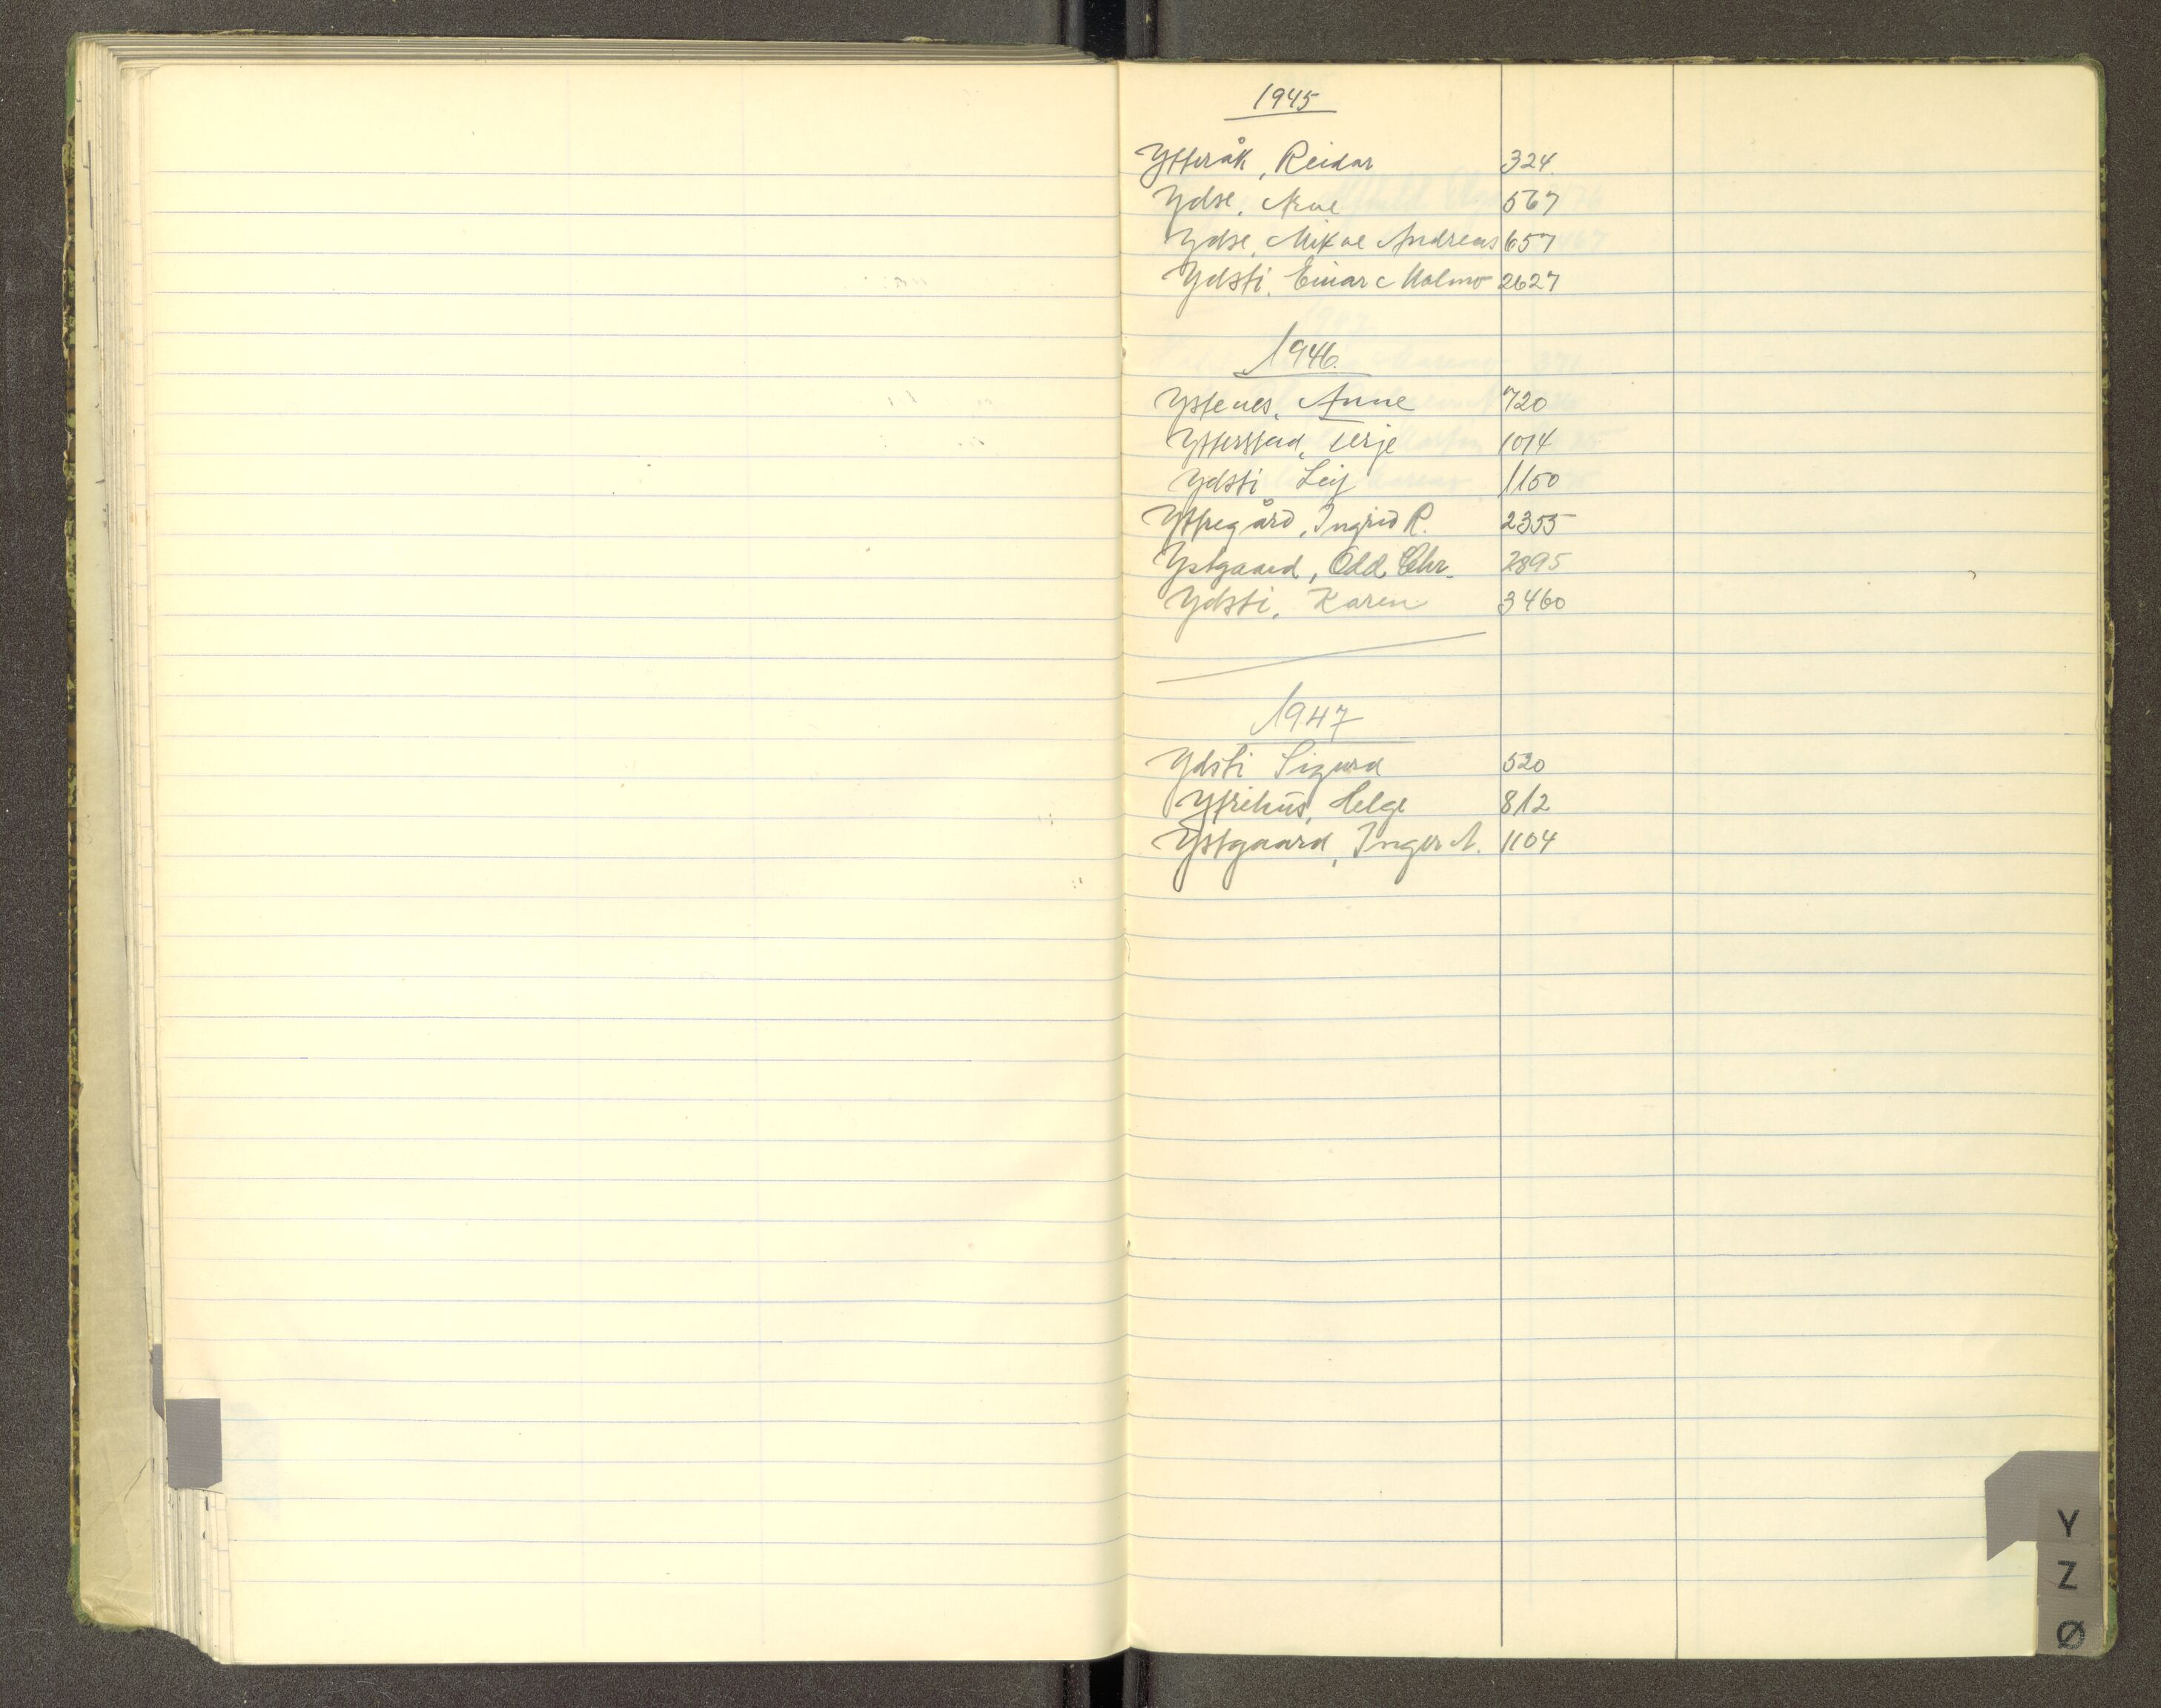 1945
Ytteråk, Reidar 324.
Ydse, Arne 567
Ydse, Mikal Andreas 657
Ydsti, Einar Malmo 2627
1946
Ystenes, Anne 720
Ytterstad, Terje 1014
Ydsti Leif 1150
Yttregård, Ingrid R. 2355
Ystgaard, Odd Chr. 2895
Ydsti, Karen 3460
1947
Ydsti Sigurd 520
Ytrehus, Helge 812
Ystgaard, Inger A. 1104
Y
Z
Ø